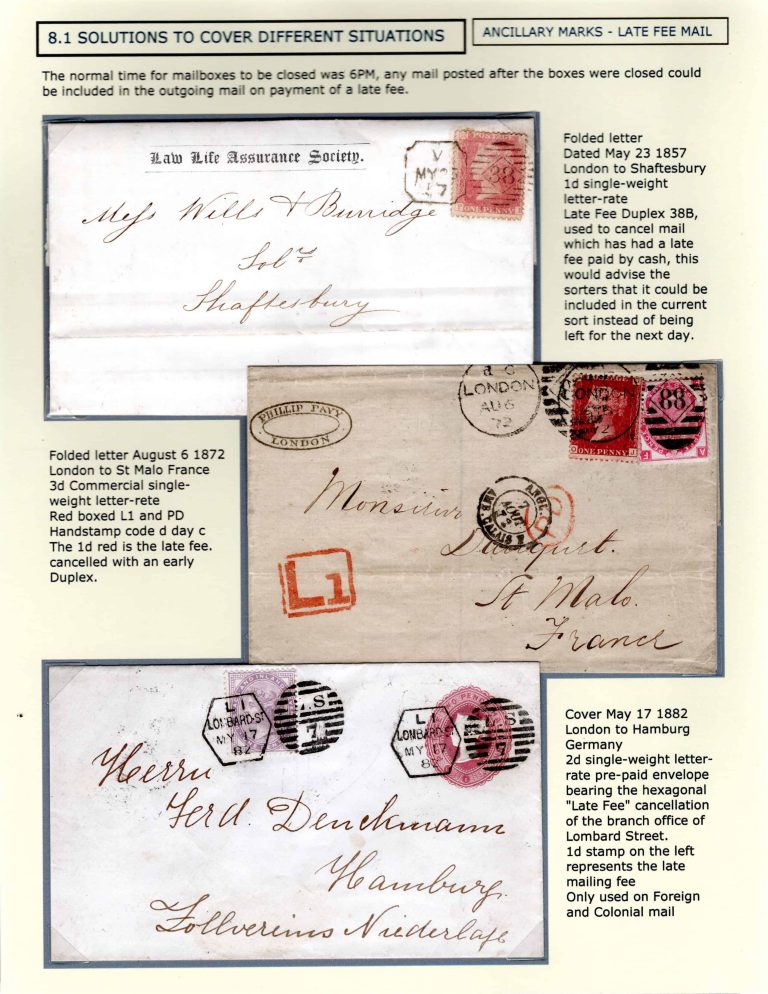 8.1 SOLUTIONS TO COVER DIFFERENT SITUATIONS
ANCILLARY MARKS - LATE FEE MAIL
The normal time for mailboxes to be closed was 6PM, any mail posted after the boxes were closed could
be included in the outgoing mail on payment of a late fee.
Law Life Assurance Society.
V
MY 23
57
38
ONE PENNY
Mess Wills & Burridge
Solrs
Shaftesbury
Folded letter
Dated May 23 1857
London to Shaftesbury
1d single-weight
letter-rate
Late Fee Duplex 38B,
used to cancel mail
which has had a late
fee paid by cash, this
would advise the
sorters that it could be
included in the current
sort instead of being
left for the next day.
Folded letter August 6 1872
London to St Malo France
3d Commercial single-
weight letter-rete
Red boxed L1 and PD
Handstamp code d day c
The 1d red is the late fee.
cancelled with an early
Duplex.
PHILLIP PAVY
LONDON
LONDON
AU 6
72
LONDON
72
88
ONE PENNY
Monsieur
ANGL.
AMB. CALAIS
PD
St Malo.
France
L1
L1
LOMBARD-ST
MY 17
82
L.S
7
L1
LOMBARD-ST
MY 17
82
L.S
7
Herrn
Ferd. Denckmann
Hamburg
Zollvereins Niederlage
Cover May 17 1882
London to Hamburg
Germany
2d single-weight letter-
rate pre-paid envelope
bearing the hexagonal
"Late Fee" cancellation
of the branch office of
Lombard Street.
1d stamp on the left
represents the late
mailing fee
Only used on Foreign
and Colonial mail